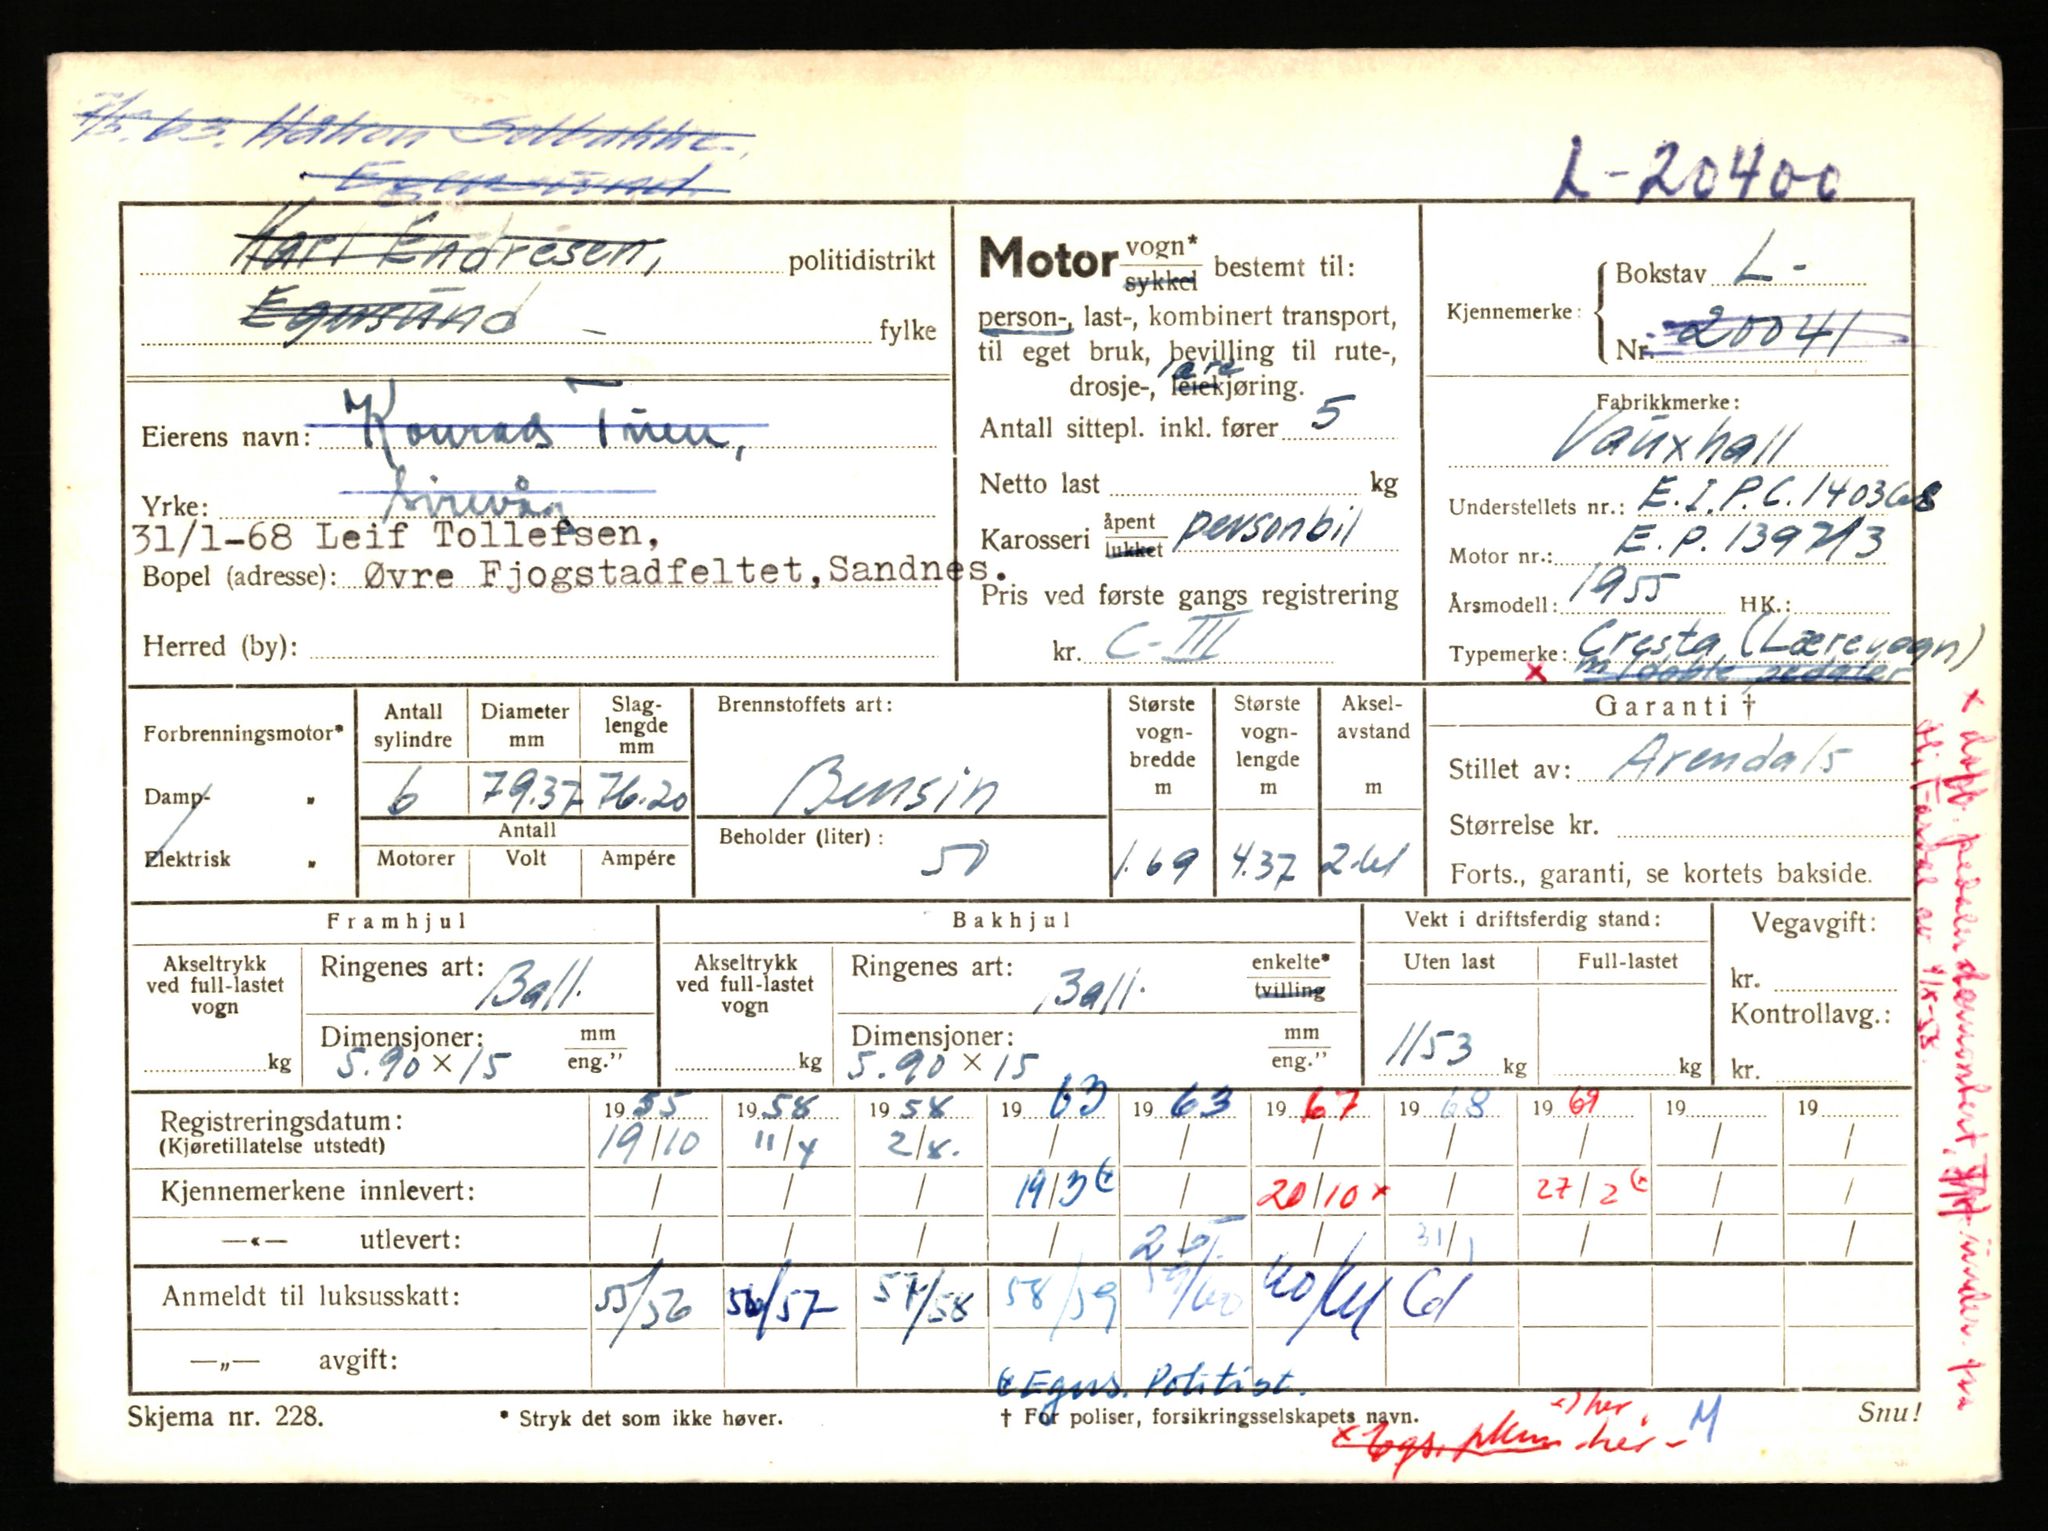 7/5.63. Håkon Solbakke,
Egersund
L-20400
Karl Endresen, politidistrikt
Egersund - fylke
Eierens navn: Konrad Tuen,
Yrke: Sirevåg
31/1-68 Leif Tollefsen,
Bopel (adresse): Øvre Fjogstadfeltet, Sandnes.
Herred (by):
Motor vogn* sykkel bestemt til:
person-, last-, kombinert transport,
til eget bruk, bevilling til rute-,
lære
drosje-, leiekjøring.
Antall sittepl. inkl. fører 5
Netto last kg
Karosseri åpent lukket personbil
Pris ved første gangs registrering
kr. C-III
Kjennemerke: Bokstav L-
Nr. 20041
Fabrikkmerke:
Vauxhall
Understellets nr.: E.I.P.C. 140368
Motor nr.: E.P. 139713
Årsmodell: 1955 HK.:
Typemerke: Cresta (Lærevogn)
x m/doble pedaler
Forbrenningsmotor*
Damp- "
Elektrisk "
Antall sylindre 6
Diameter mm 79.37
Slaglengde mm 76.20
Antall
Motorer Volt Ampére
Brennstoffets art:
Bensin
Beholder (liter):
50
Største vognbredde m 1.69
Største vognlengde m 4.37
Akselavstand m
Garanti †
Stillet av: Arendals
Størrelse kr.
Forts., garanti, se kortets bakside.
Framhjul
Akseltrykk ved full-lastet vogn kg
Ringenes art: Ball.
Dimensjoner: mm eng."
5.90 x 15
Bakhjul
Akseltrykk ved full-lastet vogn kg
Ringenes art: Ball. enkelte* tvilling
Dimensjoner: mm eng."
5.90 x 15
Vekt i driftsferdig stand:
Uten last Full-lastet
1153 kg kg
Vegavgift:
kr.
Kontrollavg.:
kr.
Registreringsdatum: 1955 1958 1958 1963 1963 1967 1968 1969 19 19
(Kjøretillatelse utstedt) 19/10 11/4 2/8. / / / / / / /
Kjennemerkene innlevert: / / / 19/3 / 20/10 x / 27/2 / /
—«— utlevert: / / / / / 31/1 / / /
Anmeldt til luksusskatt: 55/56 56/57 57/58 58/59 59/60 60/61 61
—„— avgift:
Egers. Politist.
Skjema nr. 228.
* Stryk det som ikke høver.
† For poliser, forsikringsselskapets navn.
Snu!
her.
her - M